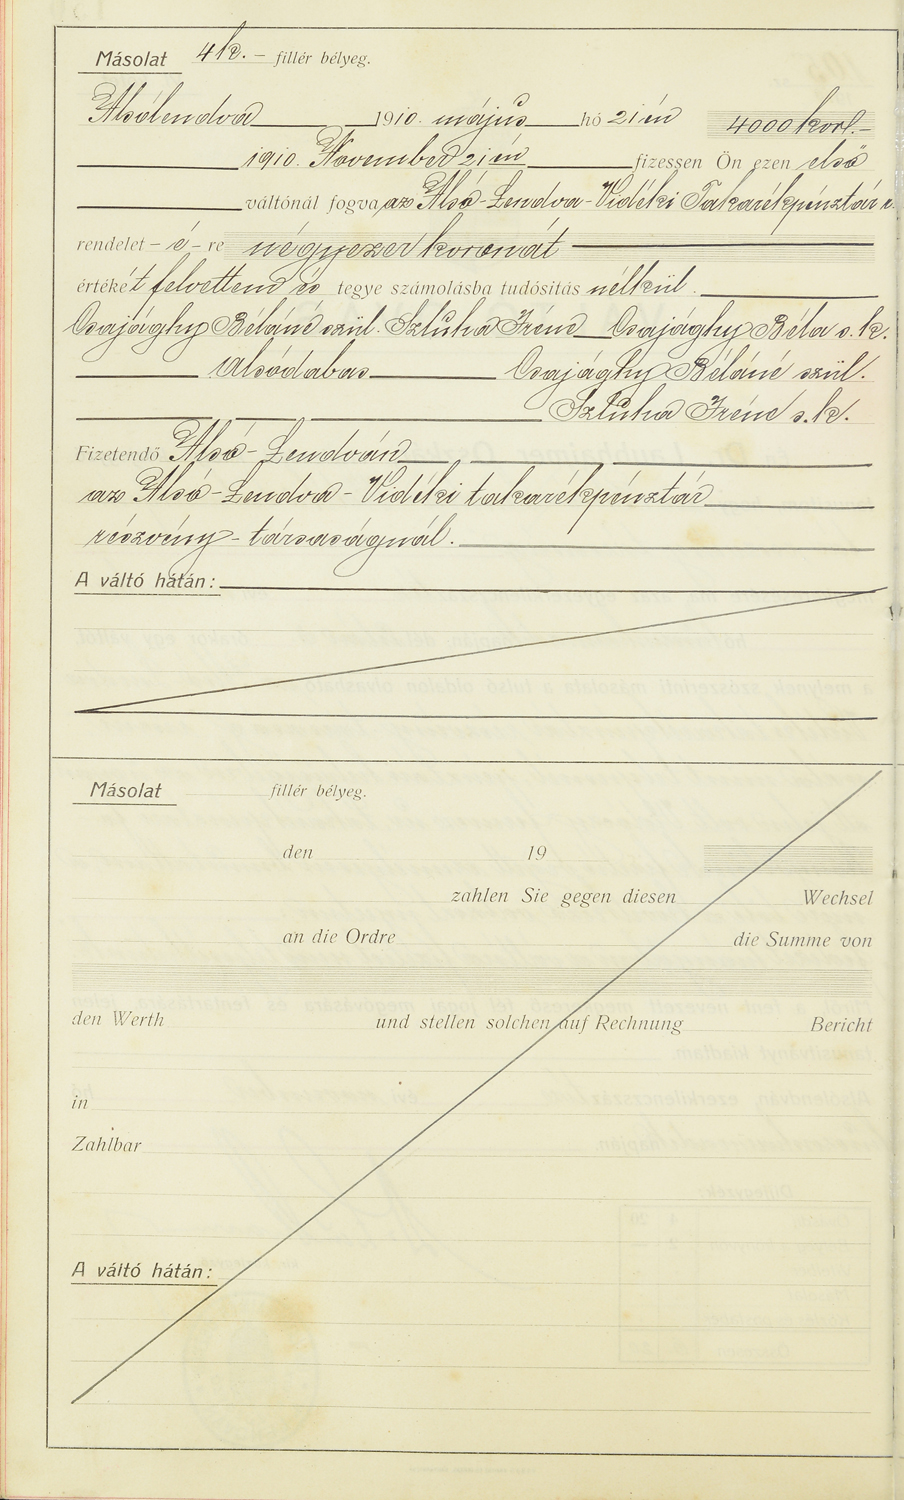 Másolat 4 k. – fillér bélyeg.
Alsólendva 1910. május hó 21 én 4000 kor.–
1910. November 21 én fizessen Ön ezen első
váltónál fogva az Alsó-Lendva-Vidéki Takarékpénztár r.
rendelet – é – re négyezer koronát
értékét felvettem és tegye számolásba tudósítás nélkül.
Csajághy Béláné szül. Sztuha Iréne Csajághy Béla s.k.
Alsódabas Csajághy Béláné szül.
Sztuha Iréne s.k.
Fizetendő Alsó-Lendván
az Alsó-Lendva-Vidéki takarékpénztár
részvény-társaságnál.
A váltó hátán:
Másolat fillér bélyeg.
den 19
zahlen Sie gegen diesen Wechsel
an die Ordre die Summe von
den Werth und stellen solchen auf Rechnung Bericht
in
Zahlbar
A váltó hátán: